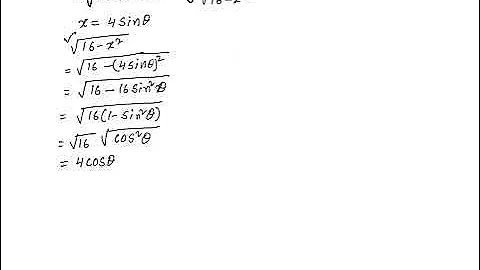 x = 4 sinθ
√(16-x²)
= √(16-(4sinθ)²)
= √(16-16sin²θ)
= √(16(1-sin²θ))
= √16 √(cos²θ)
= 4cosθ